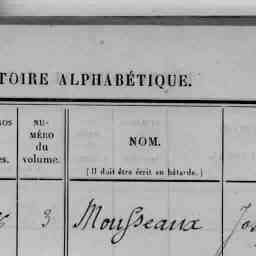 TOIRE ALPHABÉTIQUE.
NU-
MÉRO
du
volume.
NOM.
(Il doit être écrit en bâtarde.)
3 Mousseaux